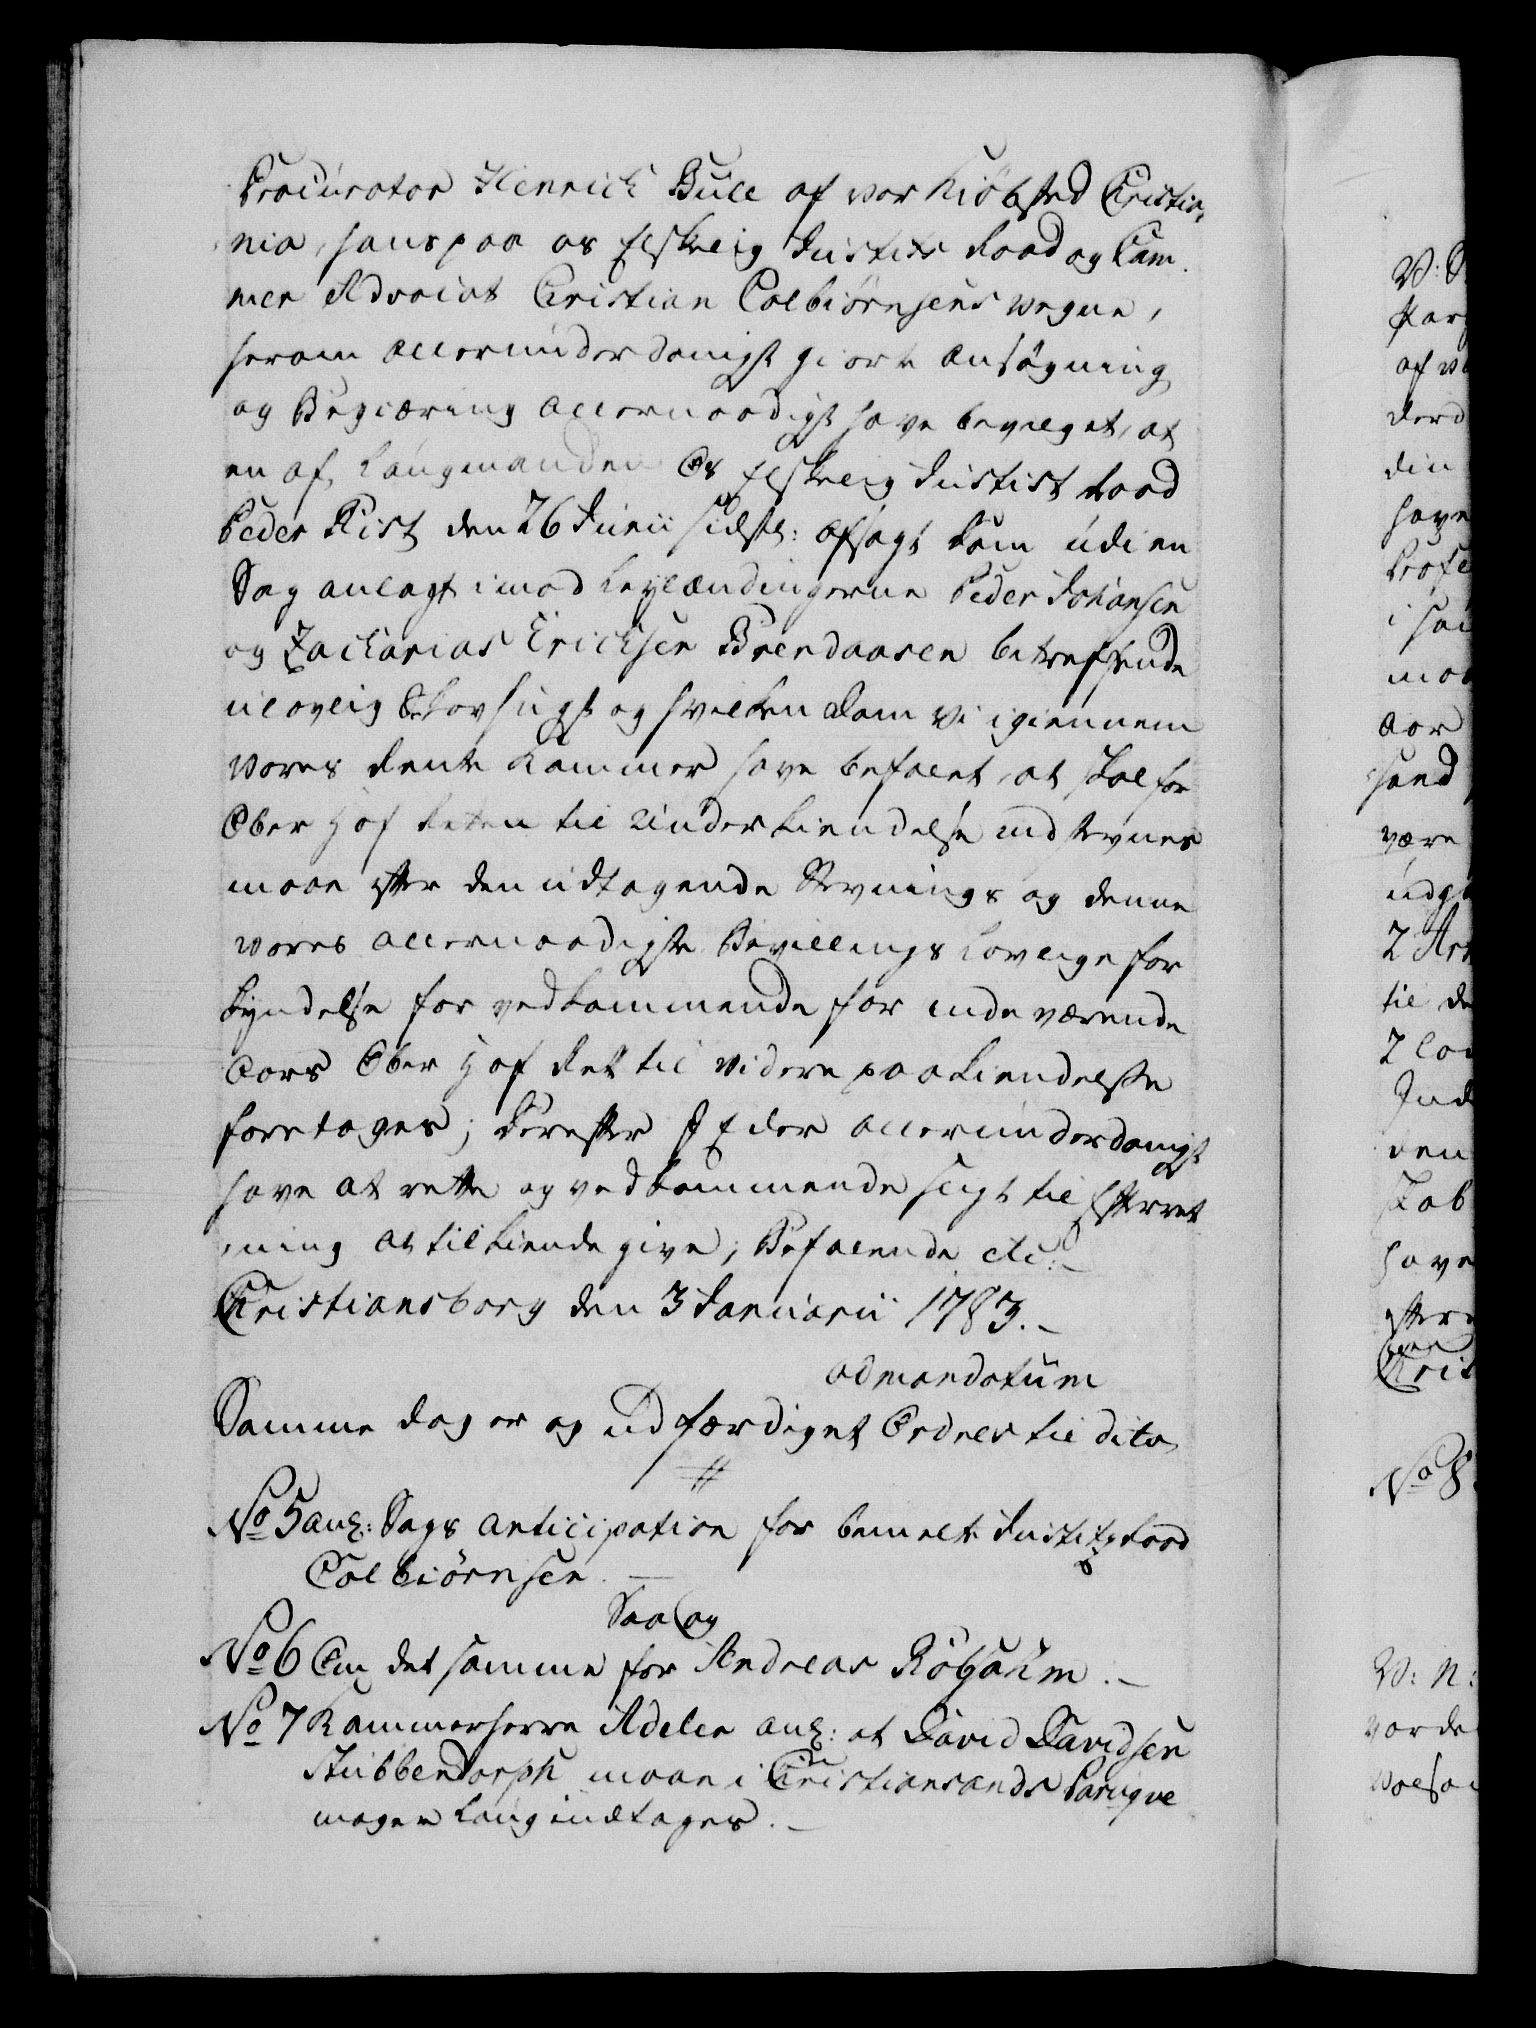 Procurator Henrich Bull af vor Kiöbsted Christia,
nia, hans paa os Elskelig Justits Raad og Cam
mer Advocat Christian Colbiørnsens vegne,
herom allerunderdanigst giorte Ansøgning
og Begiæring allernaadigst have bevilget, at
en af Laugmanden Os Elskelig Justist Raad
Peder Rist den 26 Junii sidstl: afsagt Dom udi en
Sag anlagt imod Leylændingerne Peder Johansen
og Zacharias Erichsen Brendaasen betreffende
ulovlig Skovhugst og hvilken Dom Vi igiennem
vores Rente Kammer have befalet, at skal for
Ober Hof Retten til Underkiendelse indstevnes
maae efter den udtagende Stevnings og denne
vores allernaadigste Bevillings lovlige for
kyndelse for vedkommende for indeværende
Aars Ober Hof Ret til videre paakiendelse
foretages; Derefter I Eder allerunderdanigst
have at rette og vedkommende sligt til Efterret
ning at tilkiende give; Befalende etc:
Christiansborg den 3 Januarii 1783.
ad mandatum
Samme dag er og udfærdiget Ordres til dito
//
No 5 anl: Sags anticipation for bemelte Justitz Raad
Colbiørnsen.
Saa og
No 6 Om det samme for Andreas Röbsahm.
No 7 Kammerherre Adeler anl: at David Davidsen
Stubbendorph maae i Christiansands Paruqve
mager Laug indtages.
W: S
af v
derd
din
have
Profe
i
mod
Aar
hand
være
udg
2 Ar
til de
2 lod
Ind
den
skab
have
efter
Chri
No 8.
W: N: